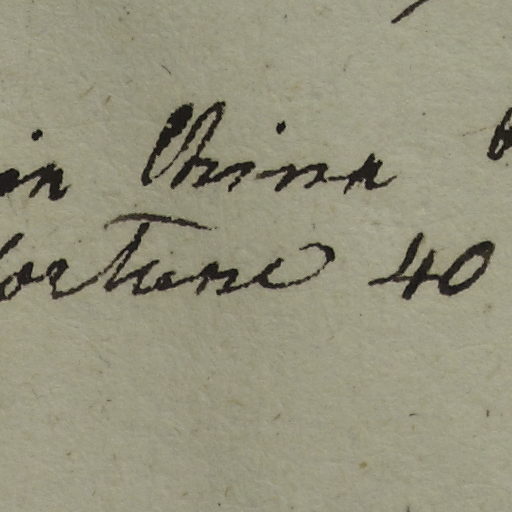 in China
fortune 40